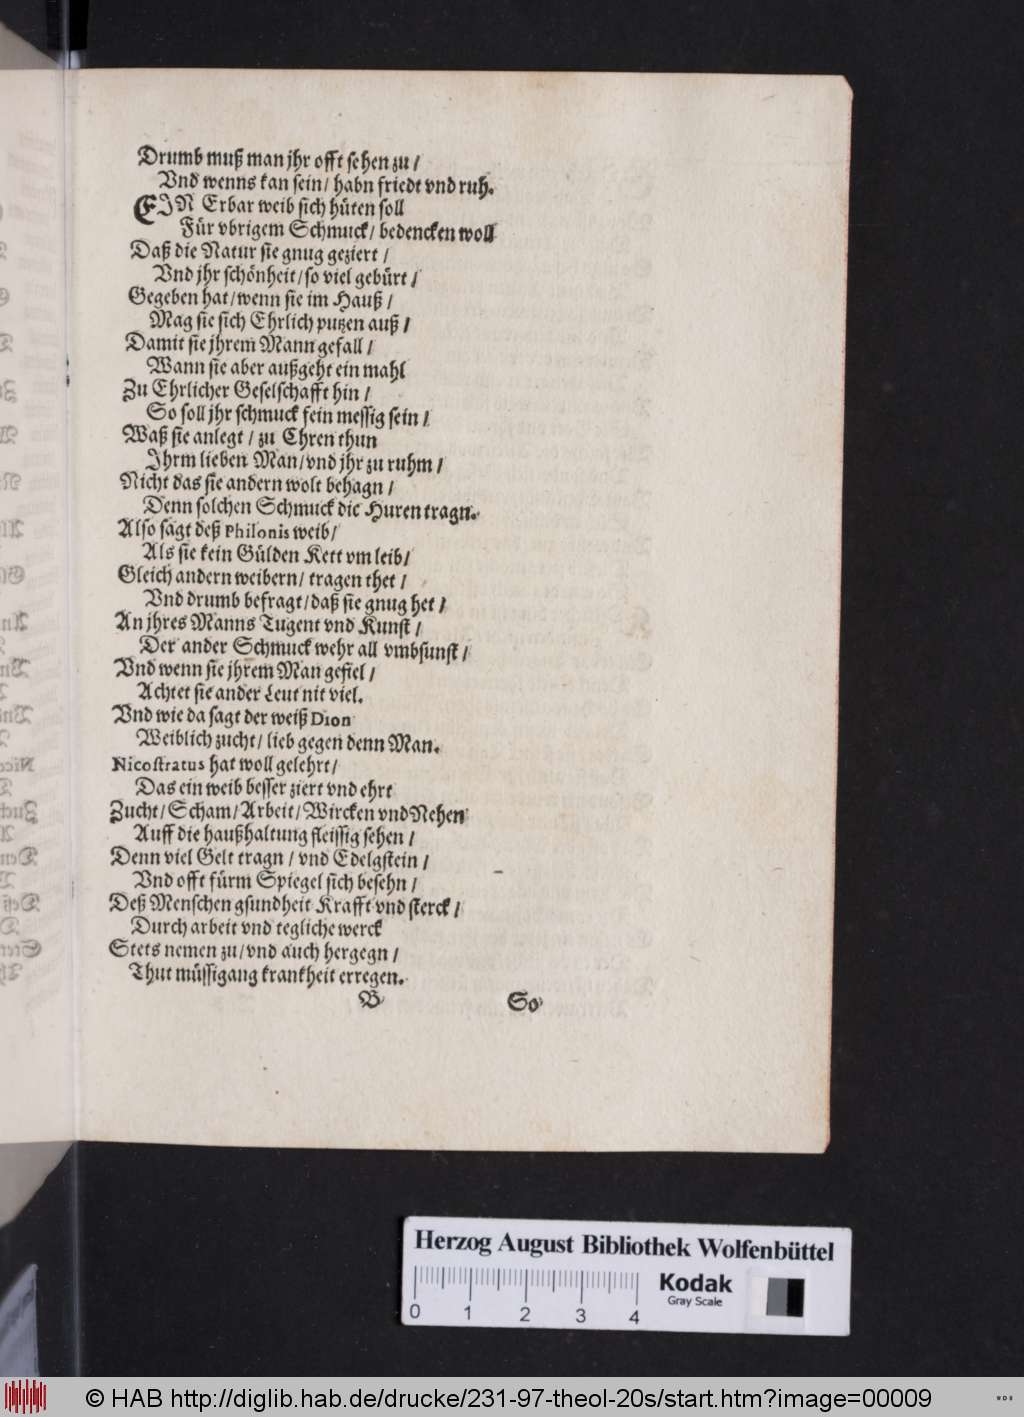 Drumb muß man jhr offt sehen zu /
Vnd wenns kan sein / habn friedt vnd ruh.
EIN Erbar weib sich hüten soll
Für vbrigem Schmuck / bedencken woll
Daß die Natur sie gnug geziert /
Vnd jhr schönheit / so viel gebürt /
Gegeben hat / wenn sie im Hauß /
Mag sie sich Ehrlich putzen auß /
Damit sie jhrem Mann gefall /
Wann sie aber außgeht ein mahl
Zu Ehrlicher Geselschafft hin /
So soll jhr schmuck fein messig sein /
Waß sie anlegt / zu Ehren thun
Ihrm lieben Man / vnd jhr zu ruhm /
Nicht das sie andern wolt behagn /
Denn solchen Schmuck die Huren tragn.
Also sagt deß Philonis weib /
Als sie kein Gülden Kett vm leib /
Gleich andern weibern / tragen thet /
Vnd drumb befragt / daß sie gnug het /
An jhres Manns Tugent vnd Kunst /
Der ander Schmuck wehr all vmbsunst /
Vnd wenn sie jhrem Man gefiel /
Achtet sie ander Leut nit viel.
Vnd wie da sagt der weiß Dion
Weiblich zucht / lieb gegen denn Man.
Nicostratus hat woll gelehrt /
Das ein weib besser ziert vnd ehrt
Zucht / Scham / Arbeit / Wircken vnd Nehen
Auff die haußhaltung fleissig sehen /
Denn viel Gelt tragn / vnd Edelgstein /
Vnd offt fürm Spiegel sich besehn /
Deß Menschen gsundheit Krafft vnd sterck /
Durch arbeit vnd tegliche werck
Stets nemen zu / vnd auch hergegn /
Thut müssigang kranckheit erregen.
B So
Herzog August Bibliothek Wolfenbüttel
0 1 2 3 4
Kodak
Gray Scale
© HAB http://diglib.hab.de/drucke/231-97-theol-20s/start.htm?image=00009